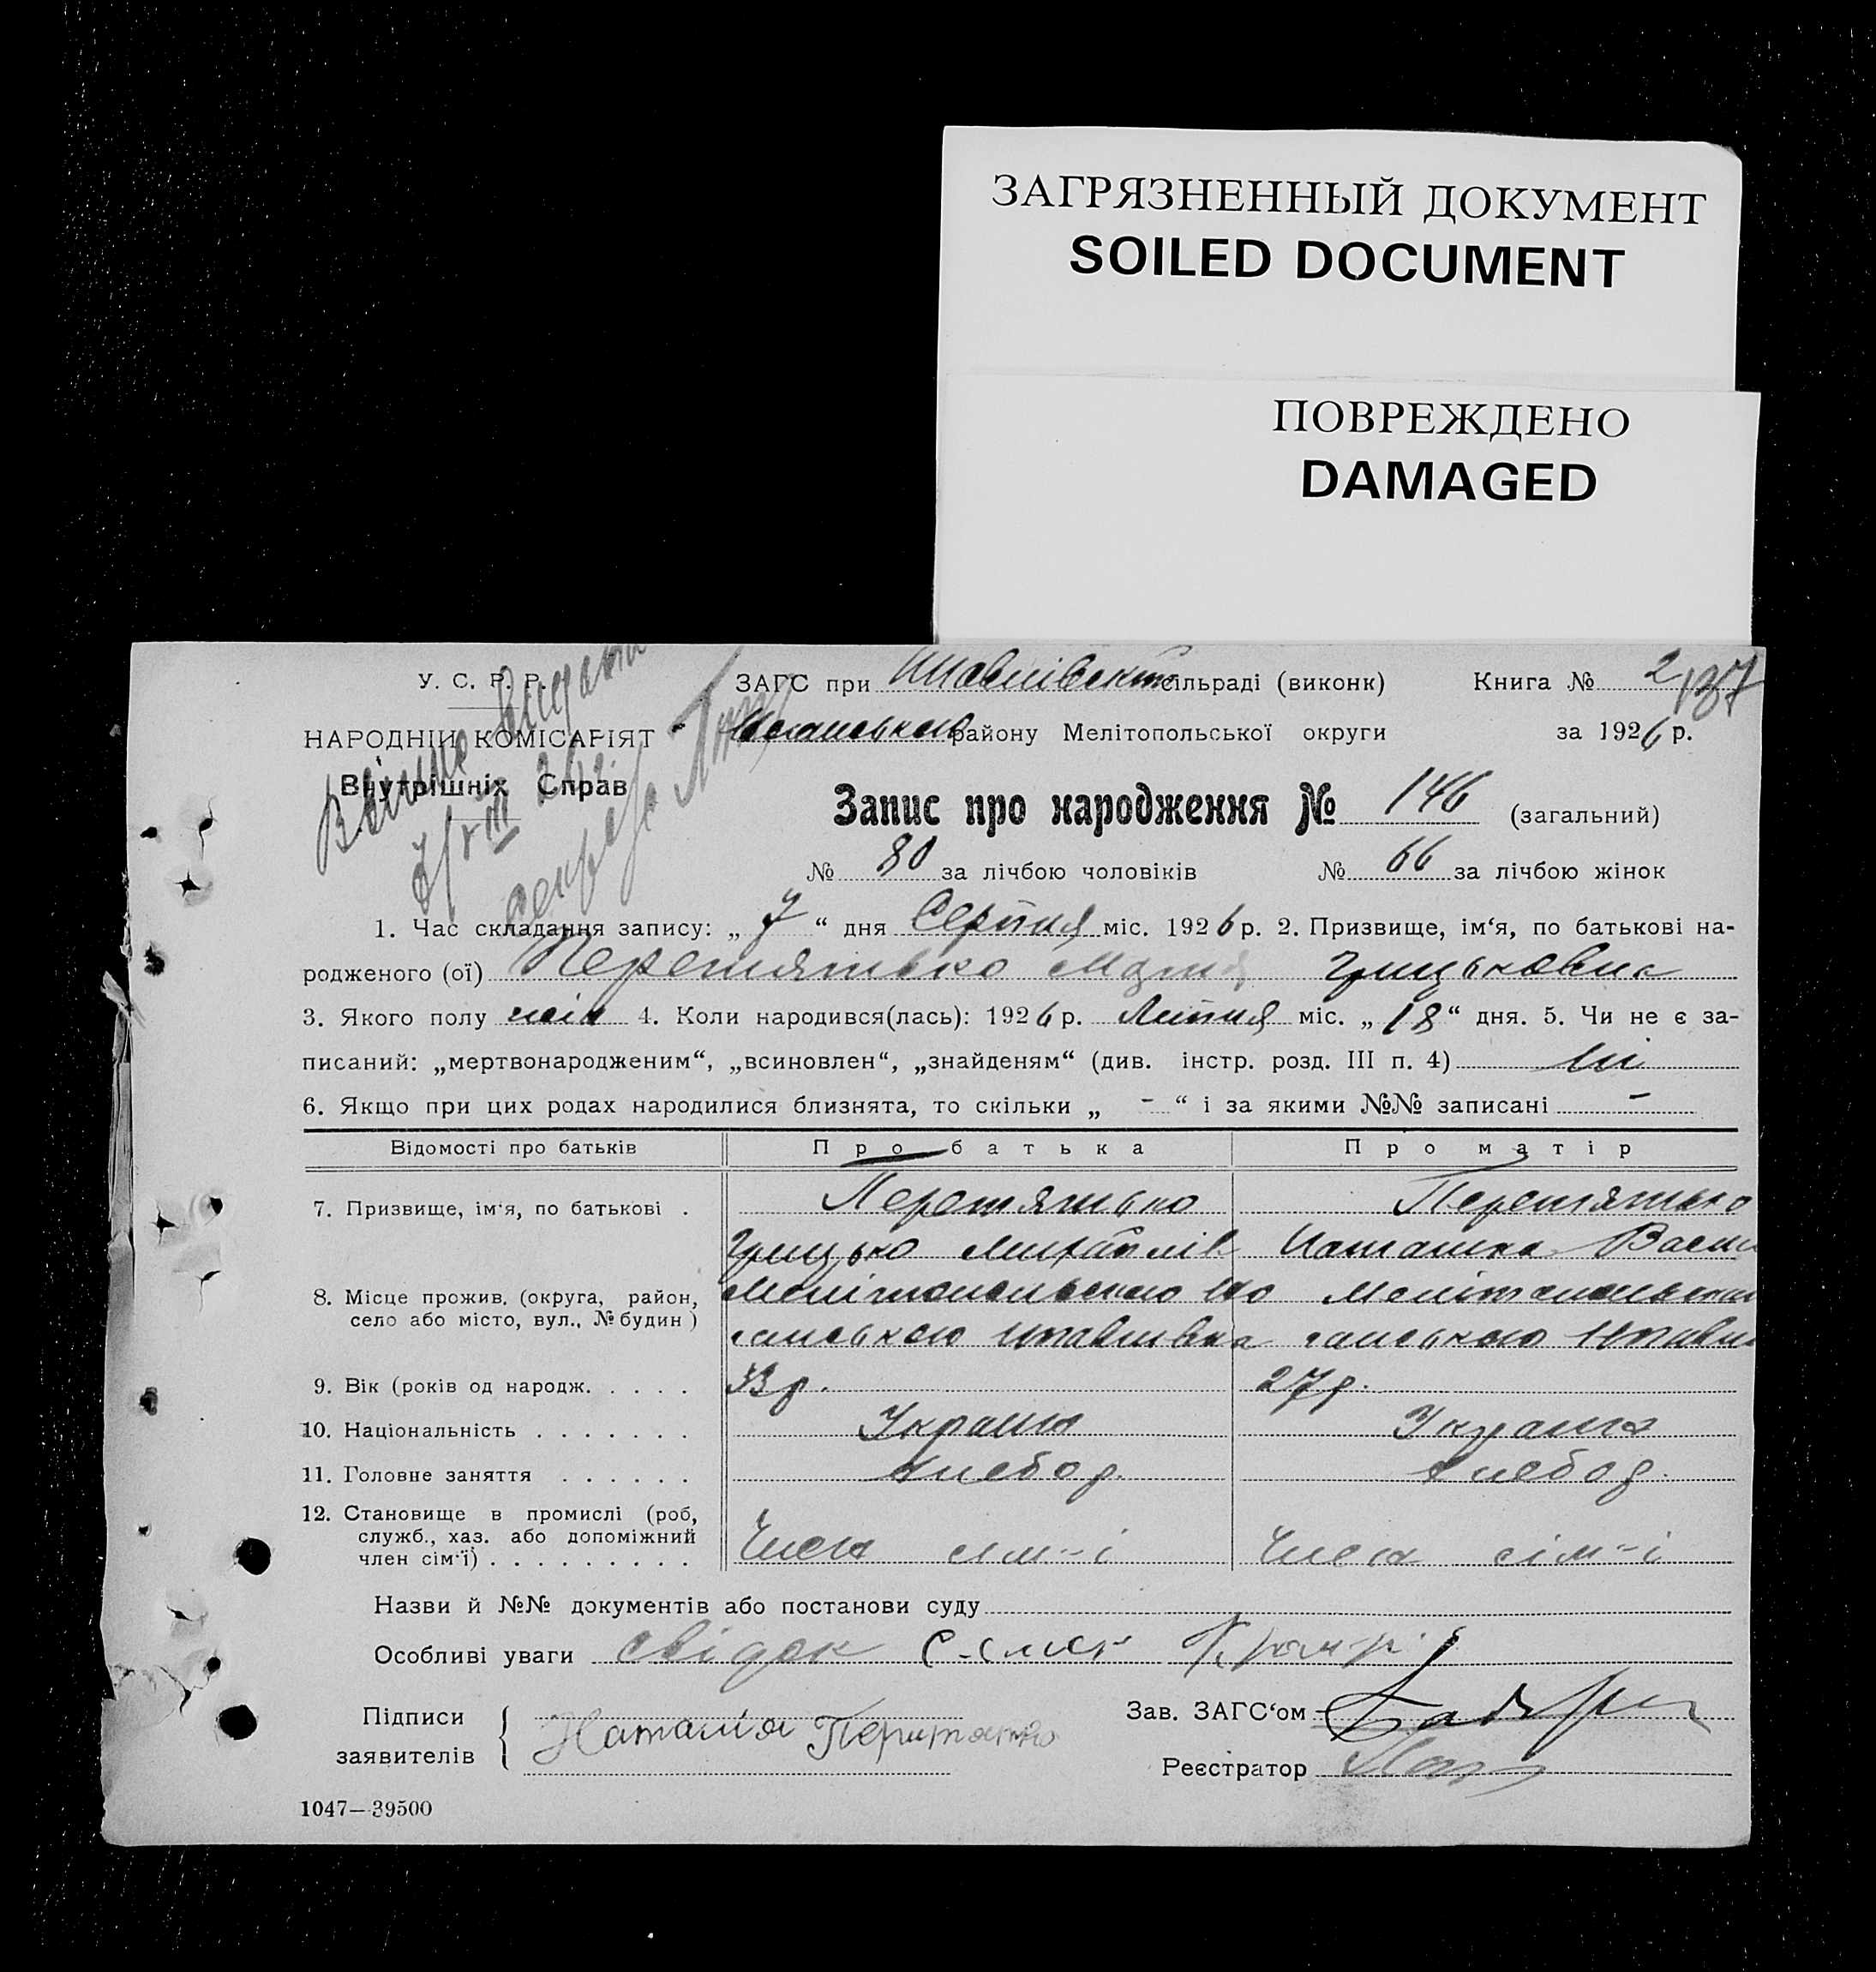 ЗАГРЯЗНЕННЫЙ ДОКУМЕНТ
SOILED DOCUMENT
ПОВРЕЖДЕНО
DAMAGED
У. С. Р. Р.
НАРОДНІЙ КОМІСАРІЯТ
Внутрішніх Справ
ЗАГС при сільраді (виконк) Книга № 2
району Мелітопольської округи за 1926 р.
Запис про народження № 146 (загальний)
№ 80 за лічбою чоловіків № 66 за лічбою жінок
1. Час складання запису: „ 7 “ дня Серпня міс. 1926 р. 2. Призвище, ім‘я, по батькові на-
родженого (ої) Перетятько Грицьковна
3. Якого полу 4. Коли народився(лась): 1926 р. Липня міс. „ 18 “ дня. 5. Чи не є за-
писаний: „мертвонародженим“, „всиновлен“, „знайденям“ (див. інстр. розд. III п. 4) ні
6. Якщо при цих родах народилися близнята, то скільки „ - “ і за якими №№ записані -
Відомості про батьків Про батька Про матір
7. Призвище, ім‘я, по батькові . Перетятько Перетятько
Грицько Михайлів
8. Місце прожив. (округа, район,
село або місто, вул., № будин )
9. Вік (років од народж. . . . . 33 р. 27 р.
10. Національність . . . . . . . Україн Україн
11. Головне заняття . . . . . . хлебор. хлебор.
12. Становище в промислі (роб,
служб., хаз. або допоміжний
член сім‘ї) . . . . . . . . . Член сім-і Член сім-і
Назви й №№ документів або постанови суду
Особливі уваги свідок
Підписи
заявителів Наталія Перитятко
Зав. ЗАГС‘ом
Реєстратор
1047—39500